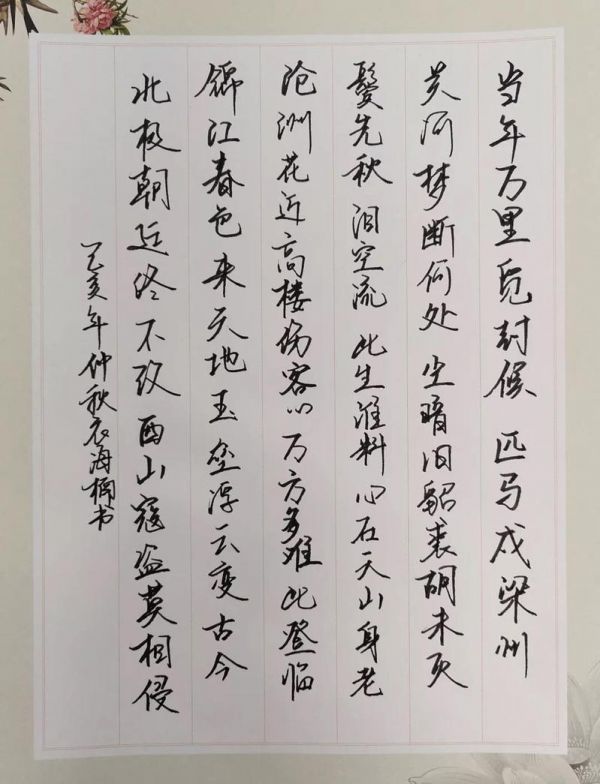 当年万里觅封候 匹马戍梁州
关河梦断何处 尘暗旧貂裘 胡未灭
鬓先秋 泪空流 此生谁料 心在天山 身老
沧洲花近高楼伤客心万方多难此登临
锦江春色来天地玉垒浮云变古今
北极朝廷终不改西山寇盗莫相侵
己亥年仲秋衣海楠书